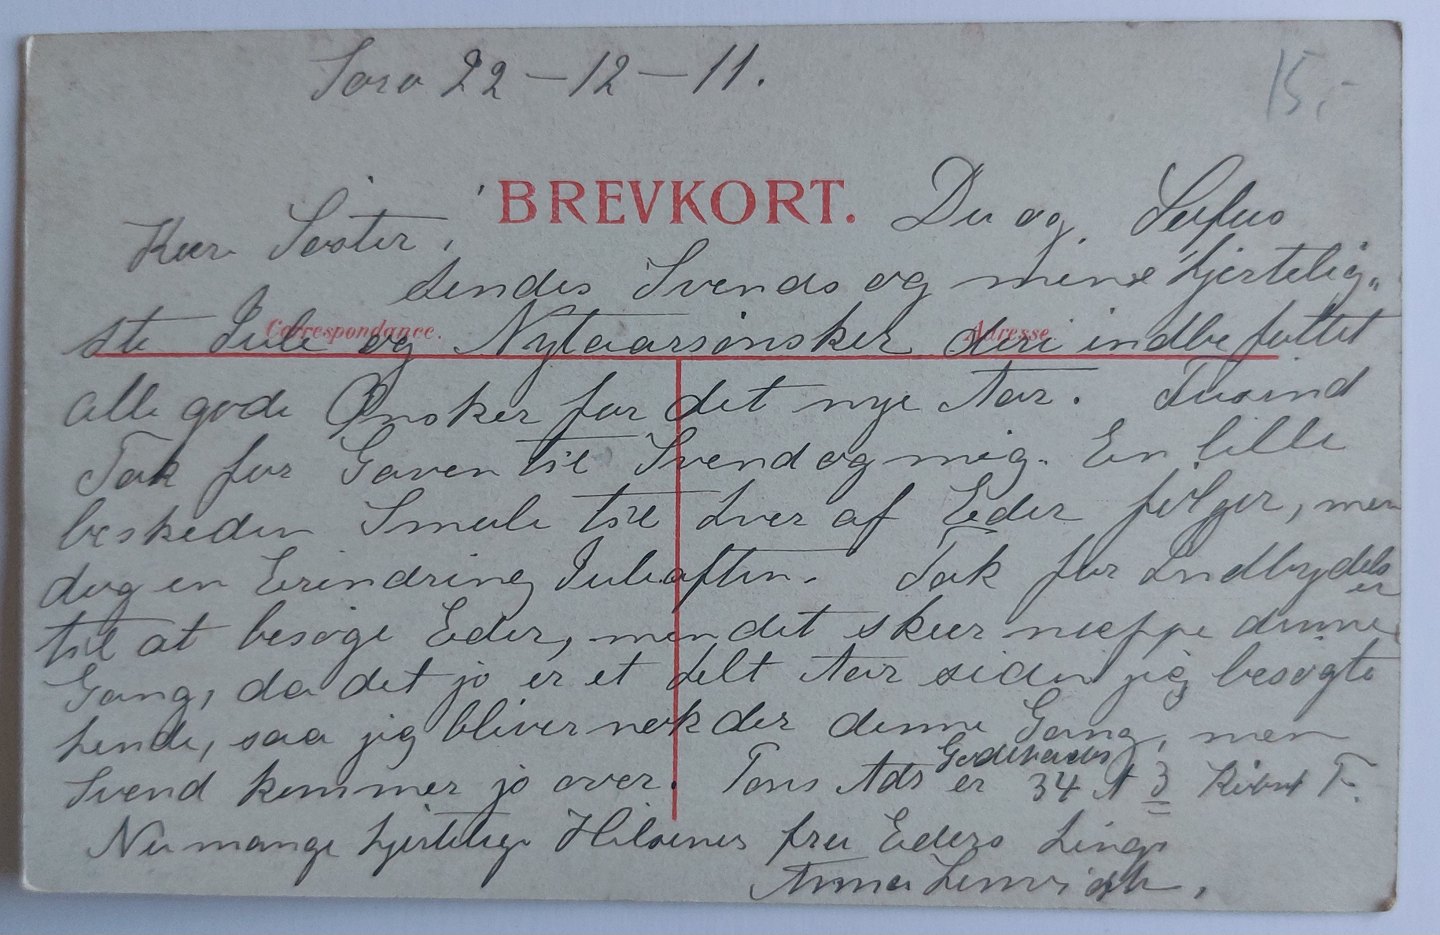 Sorø 22-12-11.
15,-
BREVKORT.
Du og
Kære Søster,
sendes Svends og mine hjertelig-
Correspondance.
Adresse
ste Jule og Nytaarsønsker deri indbefattet
alle gode Ønsker for det nye Aar. Tusind
Tak for Gaven til Svend og mig. En lille
beskeden Smule til hver af Eder følger, men
dog en Erindring Juleaften. Tak for Indbydelsen
til at besøge Eder, men det skeer næppe denne
Gang, da det jo er et helt Aar siden jeg besøgte
hende, saa jeg bliver nok der denne Gang, men
Svend kommer jo over. Adr er
34 A 3
Nu mange hjertelige Hilsener fra Eders
Anna